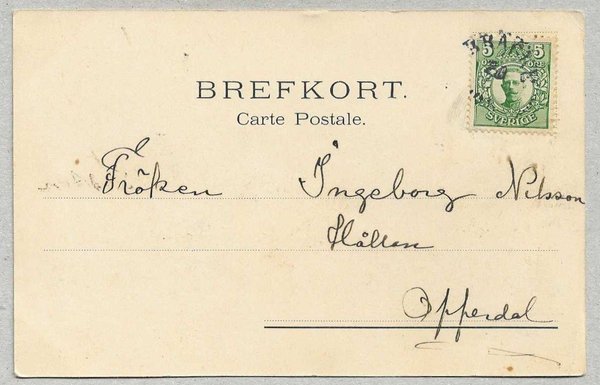 BREFKORT.
Carte Postale.
5 5
SVERIGE
Fröken Ingeborg Nilsson
Hållan
Opperdal